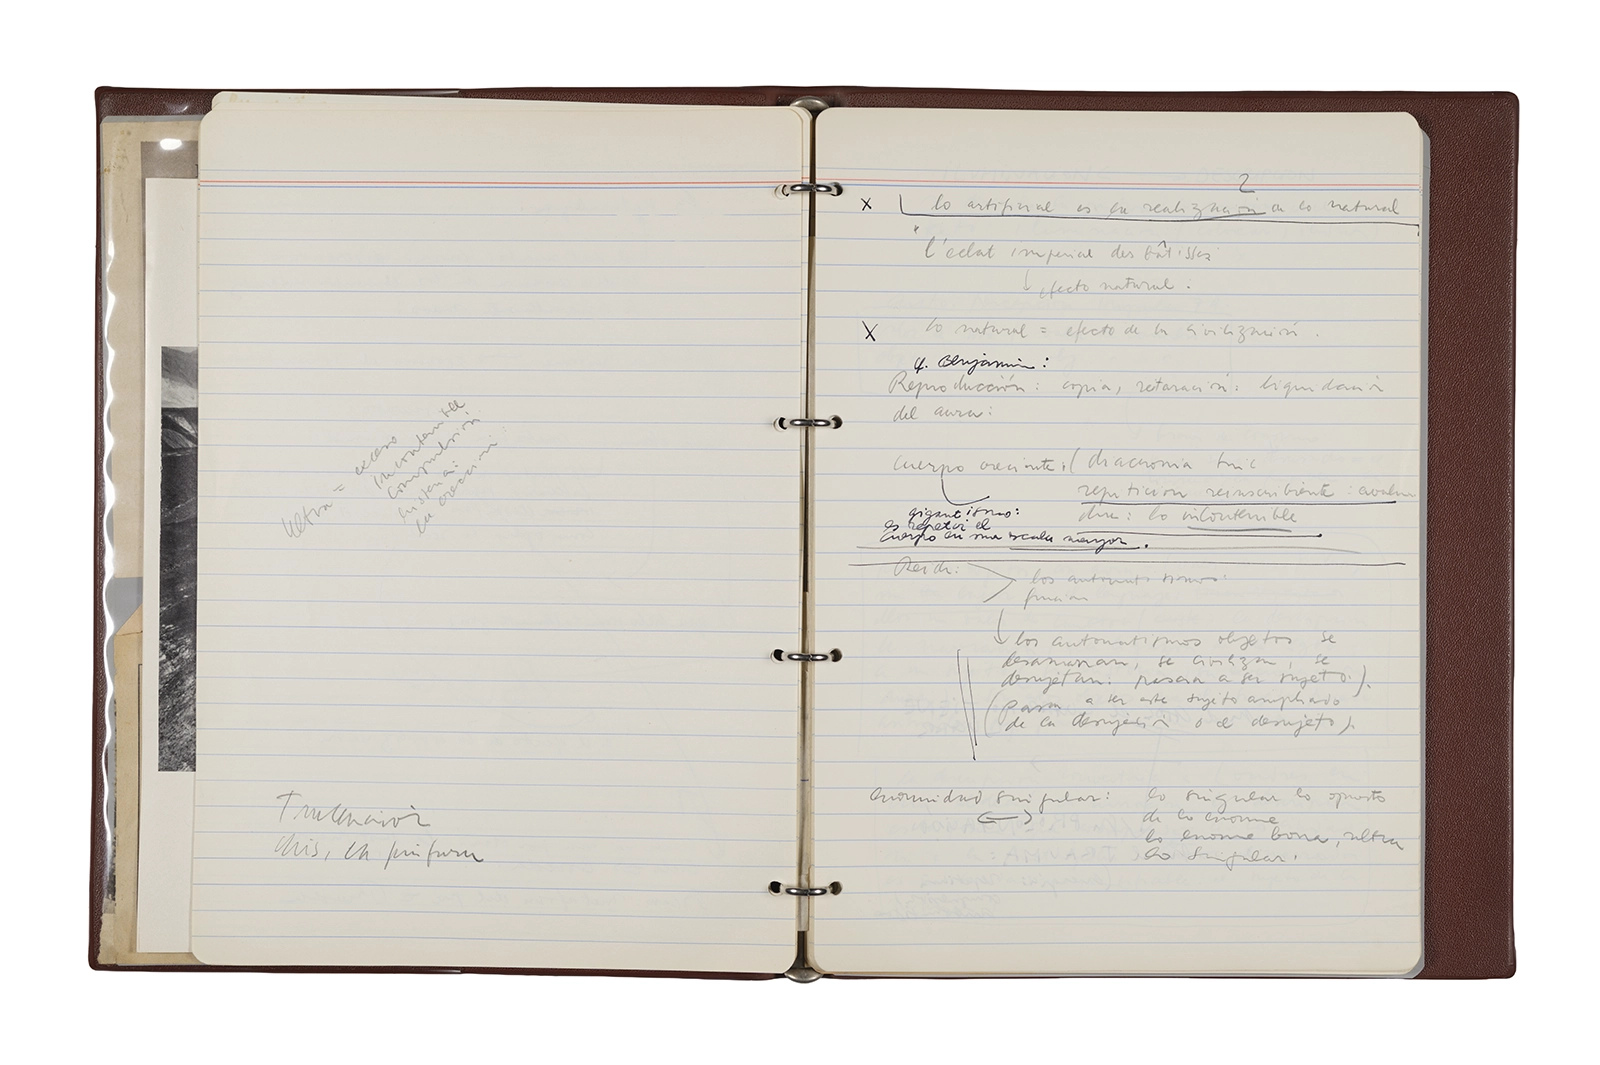 ultra = exceso
incontenible
compulsión
en creación:
la pintura
2
x lo artificial es en realización en lo natural
"l'éclat impérial des bâtisses
↓ efecto natural.
X lo natural = efecto de la civilización.
cf. Benjamin:
Reproducción: copia, liquidación
del aura:
Cuerpo creciente: (diacronía
repetición reinscribiente:
dice: lo incontenible
gigantismo:
es repetir el
cuerpo en una escala mayor.
los automatismos:
función
los automatismos objetos se
desamarran, se civilizan, se
desujetan: pasan a ser sujeto.).
(Pasan a ser este sujeto ampliado
de la desujeción o el desujeto).
enormidad singular: lo singular lo opuesto
de lo enorme
lo enorme borra, ultra
lo singular.